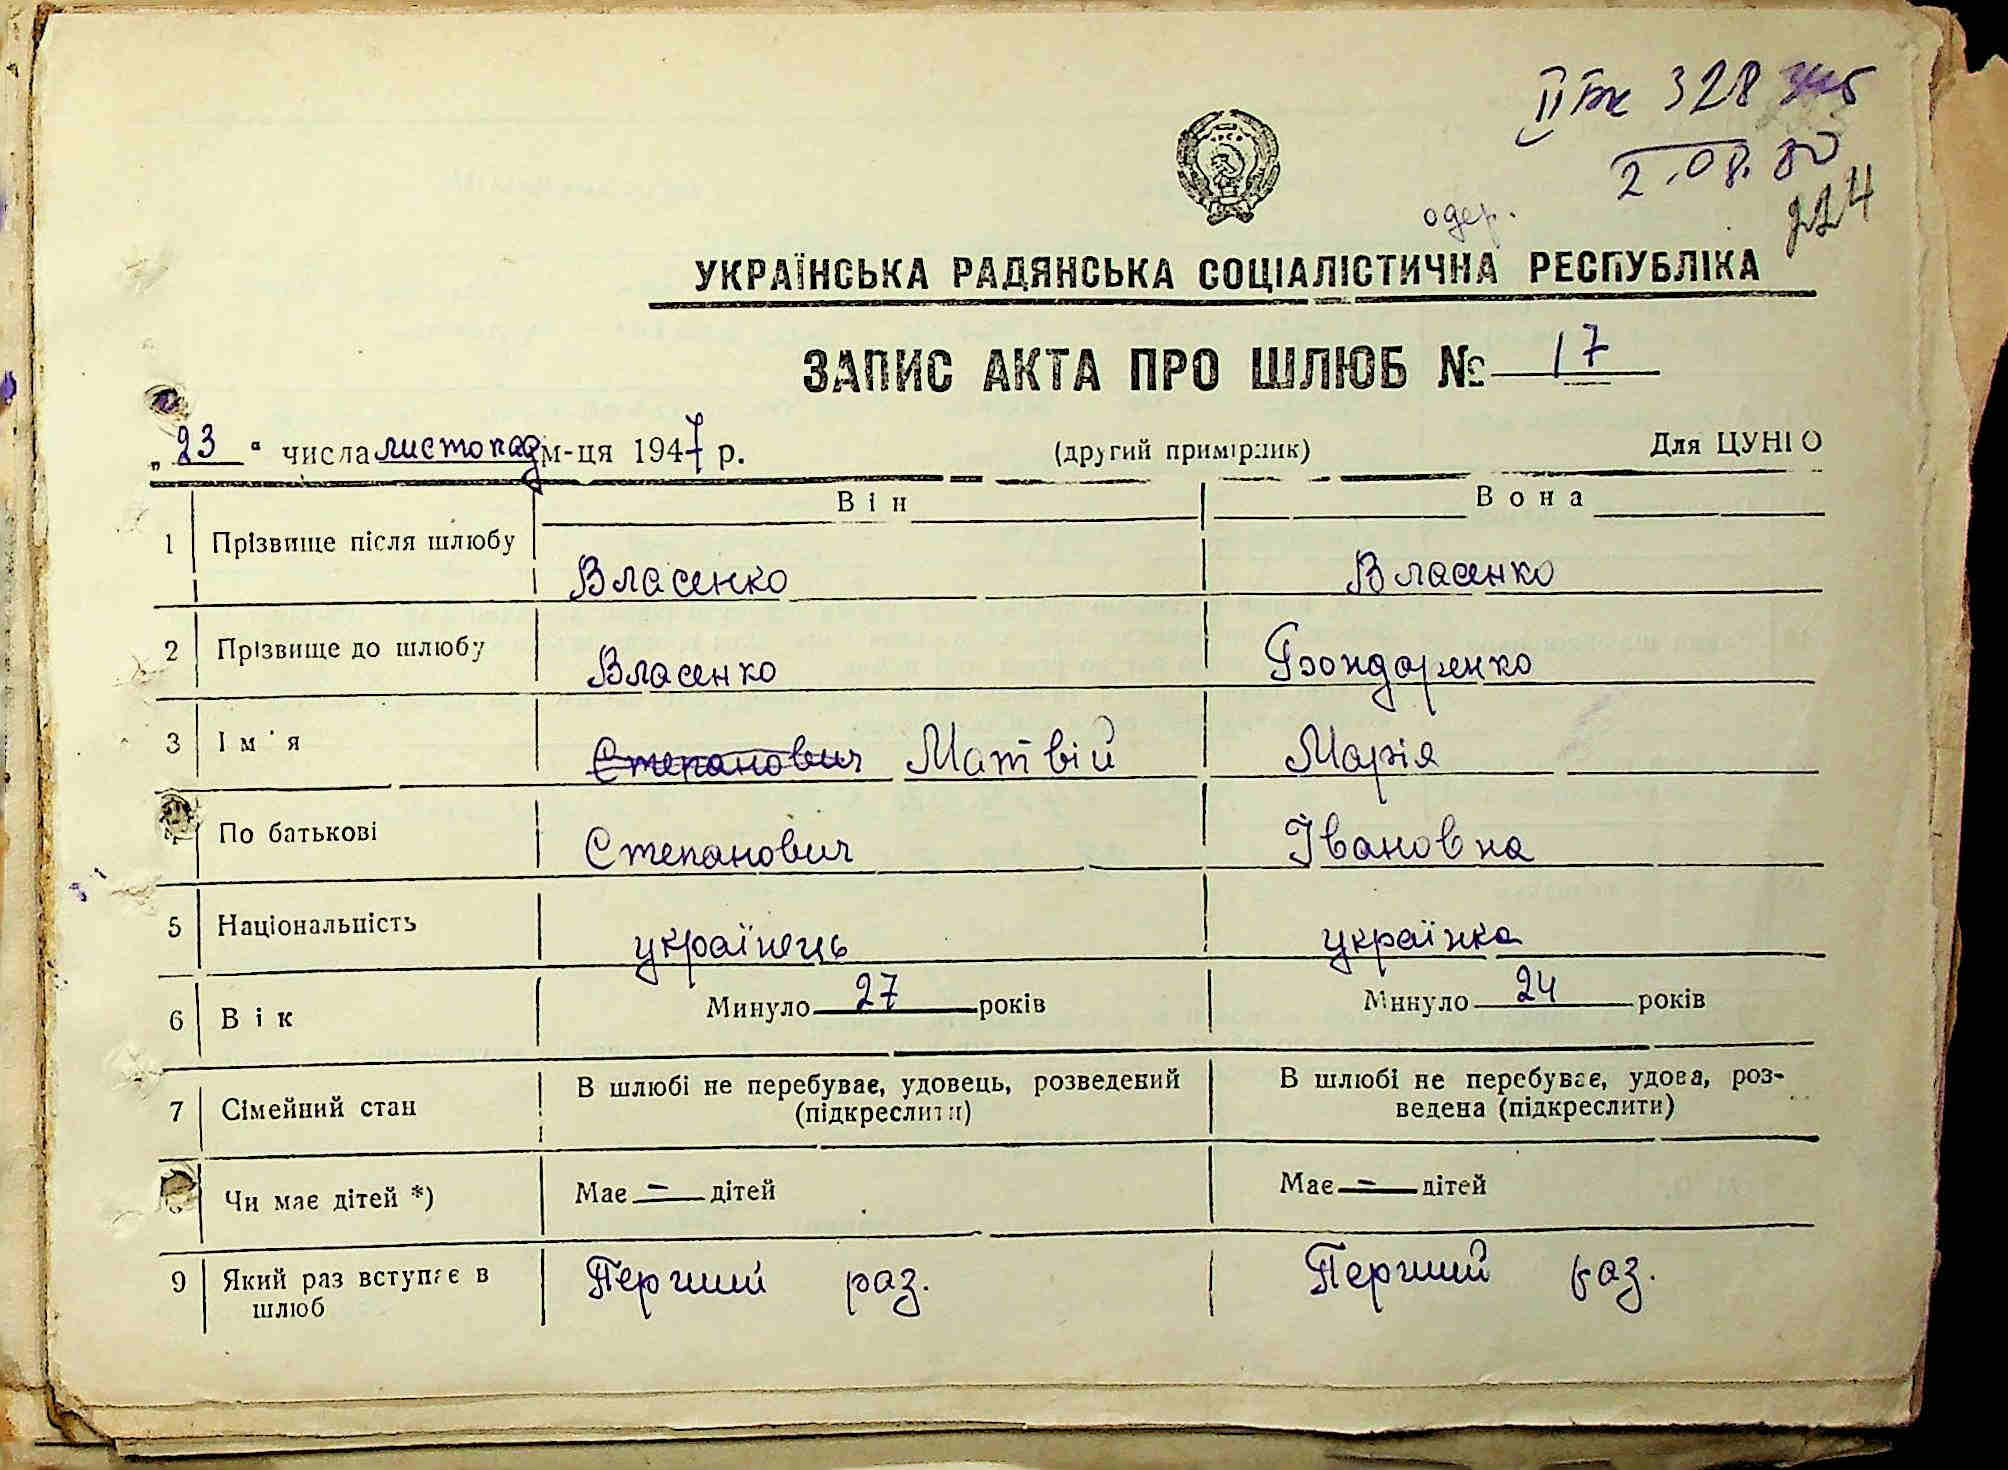 328
2.08.80
224
одер.
УКРАЇНСЬКА РАДЯНСЬКА СОЦІАЛІСТИЧНА РЕСПУБЛІКА
ЗАПИС АКТА ПРО ШЛЮБ № 17
„23“ числа листопад м-ця 1947 р. (другий примірник) Для ЦУНГО
Він Вона
1 Прізвище після шлюбу Власенко Власенко
2 Прізвище до шлюбу Власенко Бондаренко
3 Ім'я Степанович Матвій Марія
4 По батькові Степанович Івановна
5 Національність українець українка
6 Вік Минуло 27 років Минуло 24 років
7 Сімейний стан В шлюбі не перебуває, удовець, розведений (підкреслити) В шлюбі не перебуває, удова, роз-
ведена (підкреслити)
Чи має дітей *) Має — дітей Має — дітей
9 Який раз вступає в шлюб Перший раз. Перший раз.